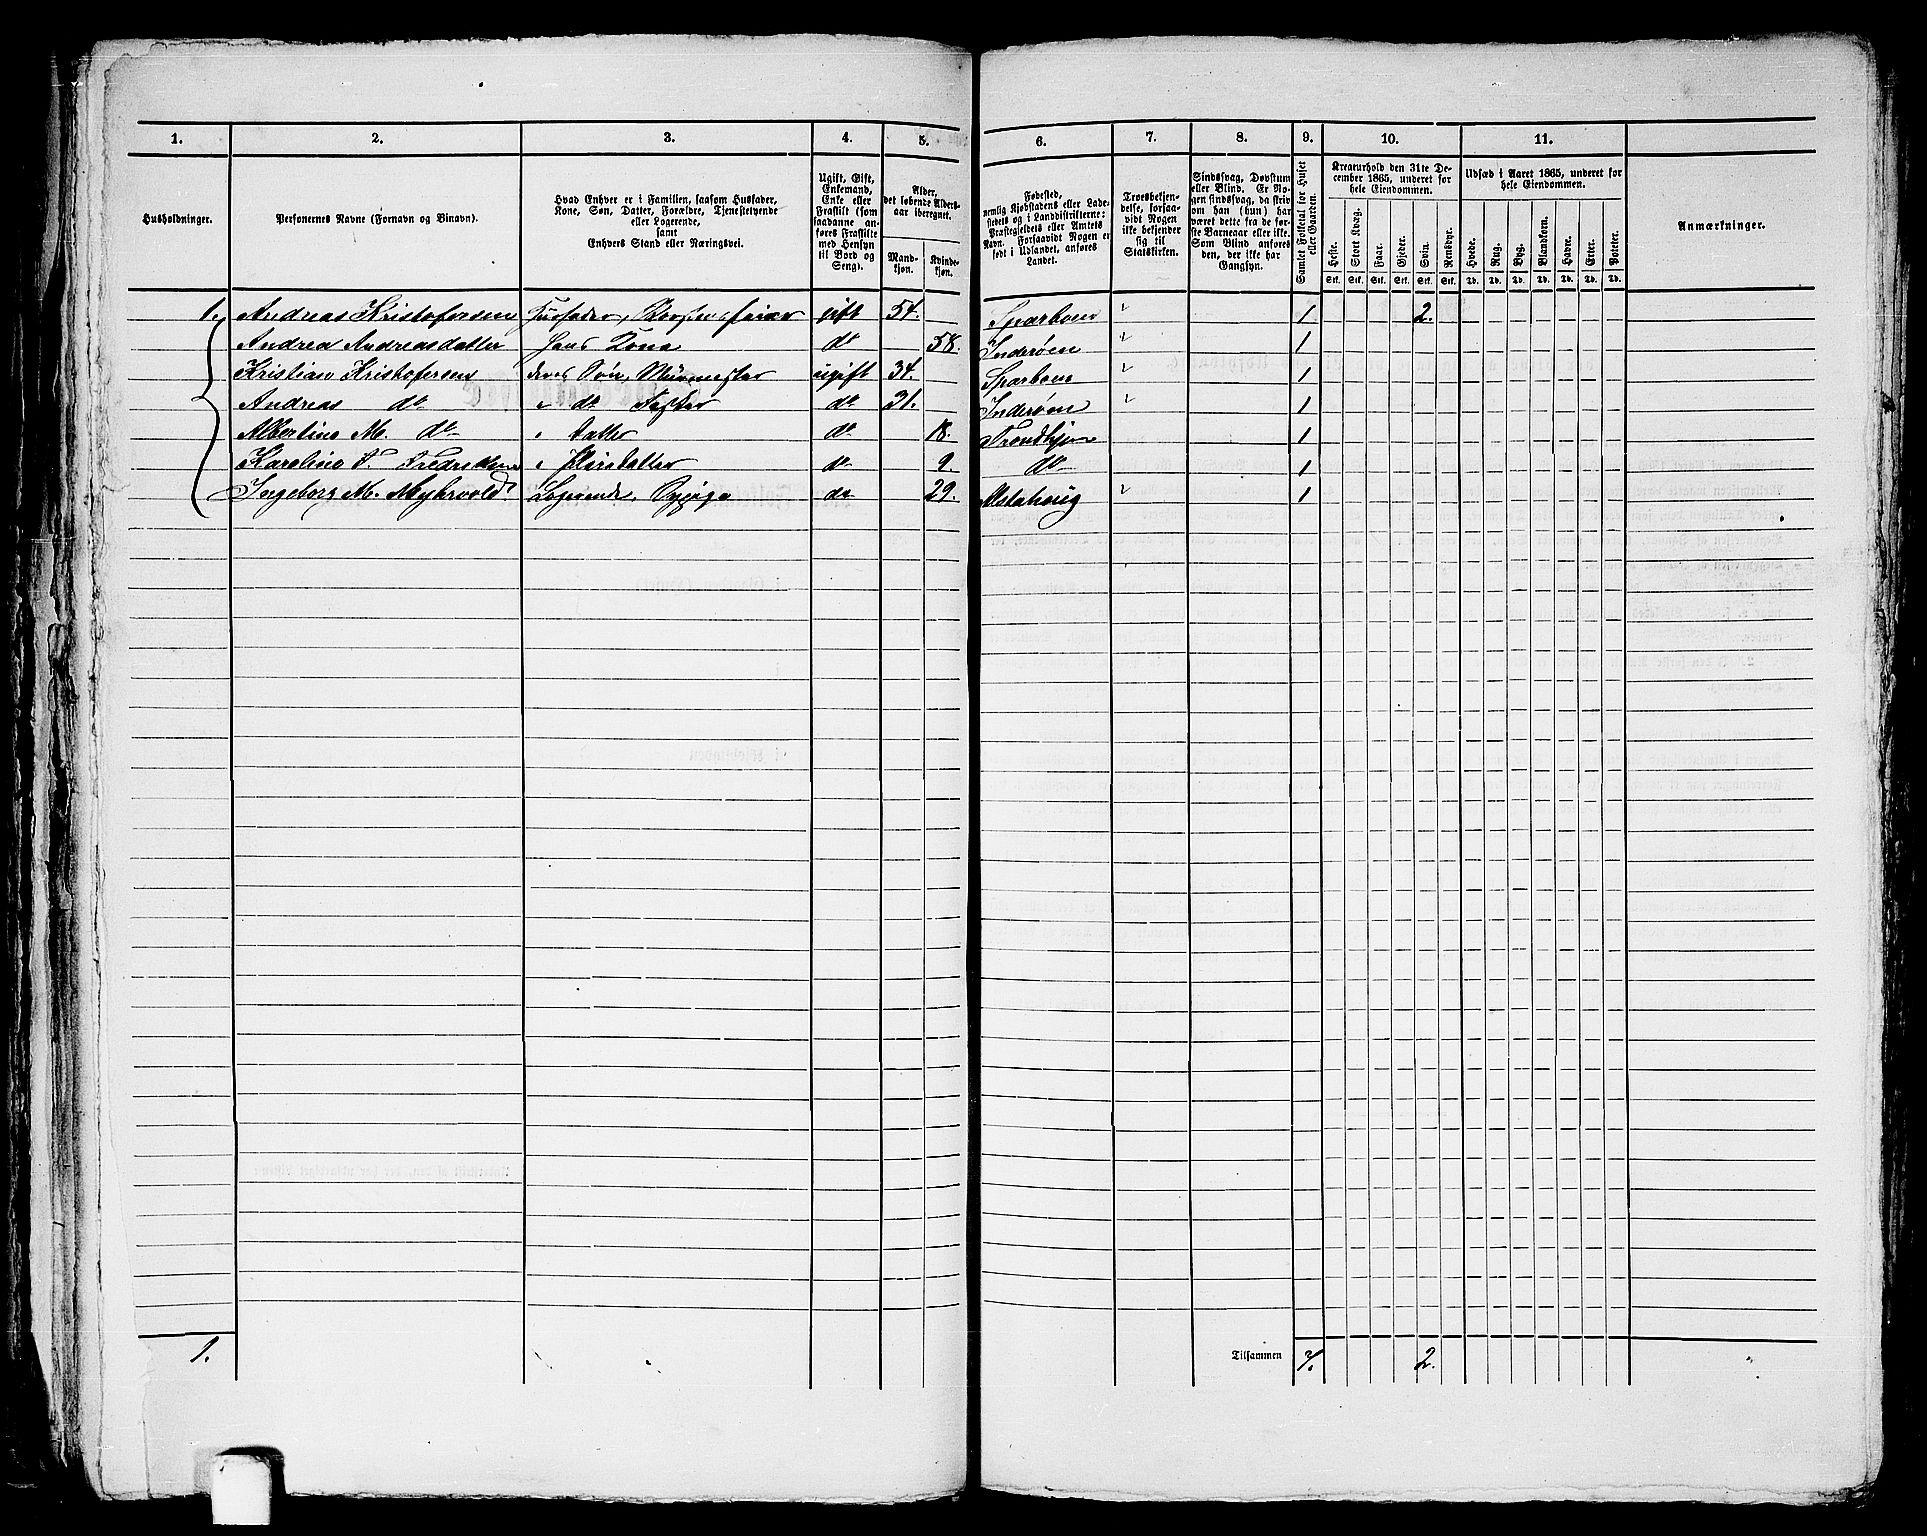 1. 2. 3. 4. 5. 6. 7. 8. 9. 10. 11.
Husholdninger.
Personernes Navne (Fornavn og Binavn).
Hvad Enhver er i Familien, saasom Husfader,
Kone, Søn, Datter, Forældre, Tjenestetyende
eller Logerende,
samt
Enhvers Stand eller Næringsvei.
Ugift, Gift,
Enkemand,
Enke eller
Fraskilt (som
saadanne an-
føres Fraskilte
med Hensyn
til Bord og
Seng).
Alder,
det løbende Alders-
aar iberegnet.
Mand-
kjøn.
Kvinde-
kjøn.
Fødested,
nemlig Kjøbstadens eller Lade-
stedets og i Landdistrikterne:
Præstegjeldets eller Amtets
Navn. Forsaavidt Nogen er
født i Udlandet, anføres
Landet.
Troesbekjen-
delse, forsaa-
vidt Nogen
ikke bekjender
sig til
Statskirken.
Sindssvag, Døvstum
eller Blind. Er No-
gen sindssvag, da skriv
om han (hun) har
været dette fra de før-
ste Barneaar eller ikke.
Som Blind anføres
den, der ikke har
Gangsyn.
Samlet Folketal for Huset
eller Gaarden.
Kreaturhold den 31te De-
cember 1865, underet for
hele Eiendommen.
Heste. Stort Kvæg. Faar. Gjeder. Svin. Rensdyr.
Stk. Stk. Stk. Stk. Stk. Stk.
Udsæd i Aaret 1865, underet for
hele Eiendommen.
Hvede. Rug. Byg. Blandkorn. Havre. Erter. Poteter.
Td. Td. Td. Td. Td. Td. Td.
Anmærkninger.
1. Andreas Kristofersen Husfader, gift 54. Sparboen " 1 2.
Andrea Andreasdatter Hans Kone do 58. Inderøen " 1
Kristian Kristofersen deres Søn, Murmester ugift 34. Sparboen " 1
Andreas do " do do 31. Inderøen " 1
Albertine M. do " datter do 18. Trondhjem 1
Karoline Fredriksen " Pleiedatter do 9. do 1
Ingeborg M. Myhrvold Logerende, Sypige do 29. Alstahoug " 1
1. Tilsammen 7. 2.